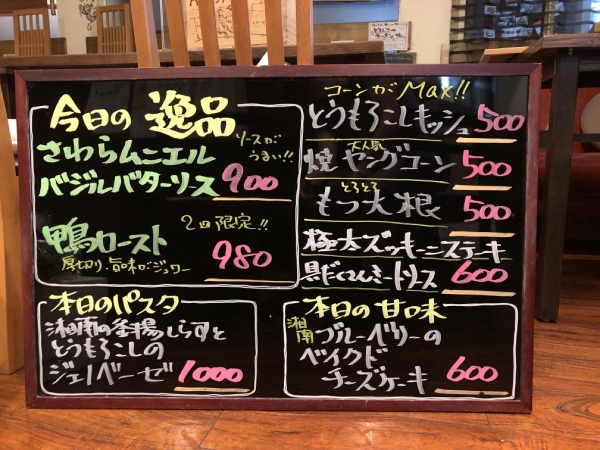 今日の逸品
さわらムニエル
ソースが
うまい!!
バジルバターソース 900
2回限定!!
鴨ロースト 980
厚切り、旨味がジュワー
コーンがMax!!
とうもろこしキッシュ 500
大人気
焼ヤングコーン 500
とろとろ
もつ大根 500
極太ズッキーニステーキ
具だくさんミートソース 600
本日のパスタ
湘南の釜揚しらすと
とうもろこしの
ジェノベーゼ 1000
本日の甘味
湘南ブルーベリーの
ベイクド
チーズケーキ 600